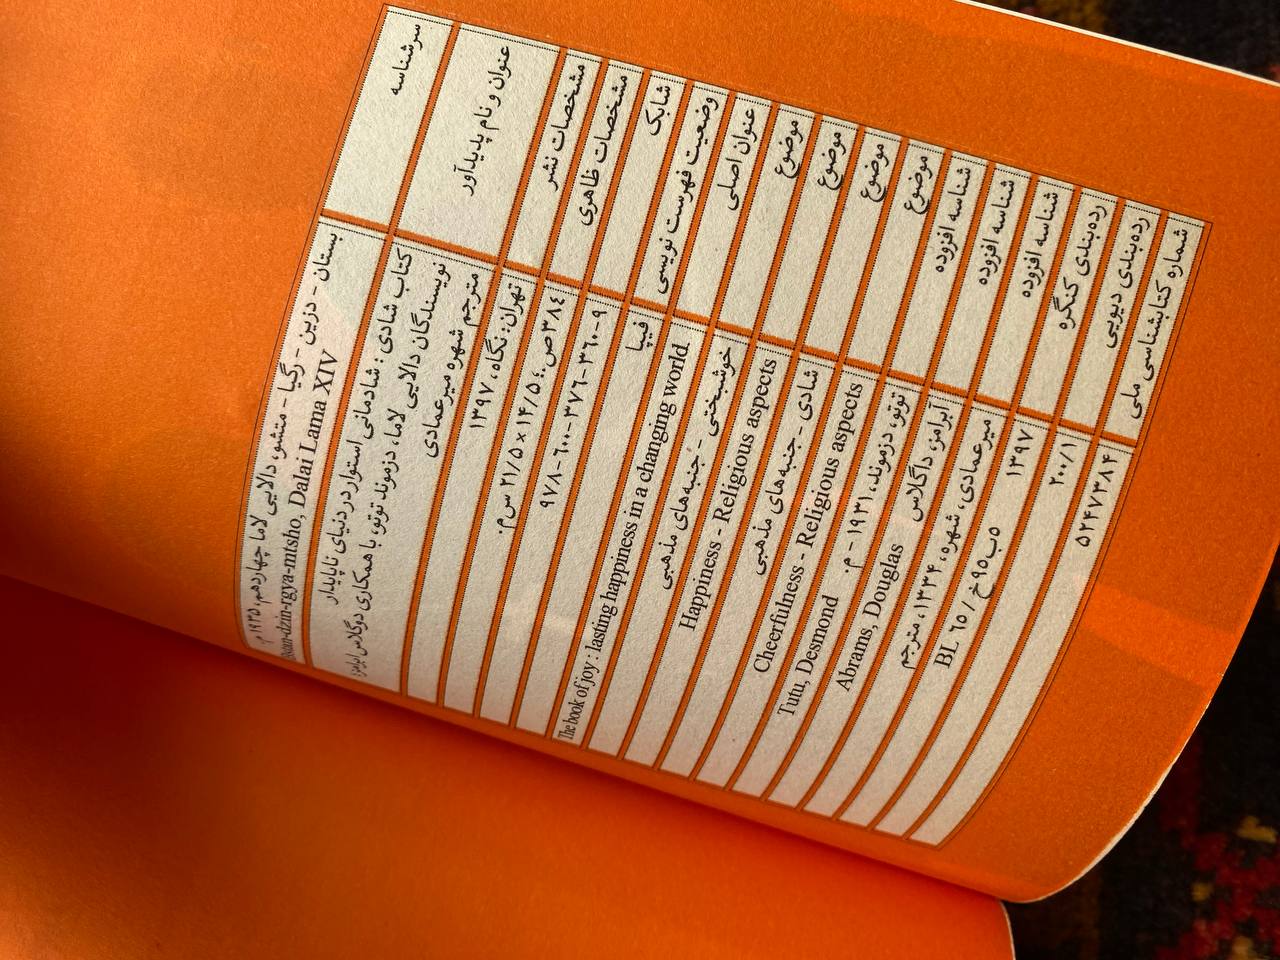 سرشناسه
بستان - دزین - رگیا - متشو، دالایی لاما چهاردهم، ۱۹۳۵ م
Bstan-dzin-rgya-mtsho, Dalai Lama XIV
عنوان و نام پدیدآور
کتاب شادی : شادمانی استوار در دنیای ناپایدار
نویسندگان دالایی لاما، دزموند توتو، با همکاری دوگلاس ابرامز؛
مترجم شهره میرعمادی
مشخصات نشر
تهران: نگاه، ۱۳۹۷
مشخصات ظاهری
۳۸۴ص.؛ ۱۴/۵ × ۲۱/۵ س‌م.
شابک
۹۷۸-۶۰۰-۳۷۶-۳۶۰-۹
وضعیت فهرست نویسی
فیپا
عنوان اصلی
The book of joy : lasting happiness in a changing world
موضوع
خوشبختی - جنبه‌های مذهبی
موضوع
Happiness - Religious aspects
موضوع
شادی - جنبه‌های مذهبی
موضوع
Cheerfulness - Religious aspects
شناسه افزوده
توتو، دزموند، ۱۹۳۱ - م.
Tutu, Desmond
شناسه افزوده
آبرامز، داگلاس
Abrams, Douglas
شناسه افزوده
میرعمادی، شهره، ۱۳۳۴، مترجم
رده‌بندی کنگره
۱۳۹۷ ۵ب۹۵خ / BL ٦٥
رده‌بندی دیویی
۲۰۰/۱
شماره کتابشناسی ملی
۵۲۴۷۳۸۴